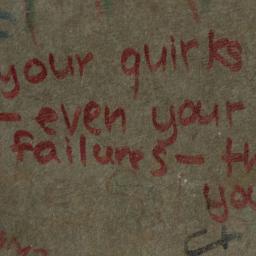 your quirks
- even your
failures - th
yo